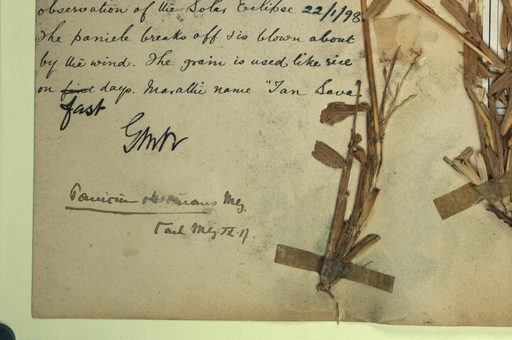 observation of the Solar Eclipse 22/1/98
The panicle breaks off & is blown about
by the wind. The grain is used like rice
on first days. Marathi name "Tan Sava"
fast
Panicum Mez.
Mez